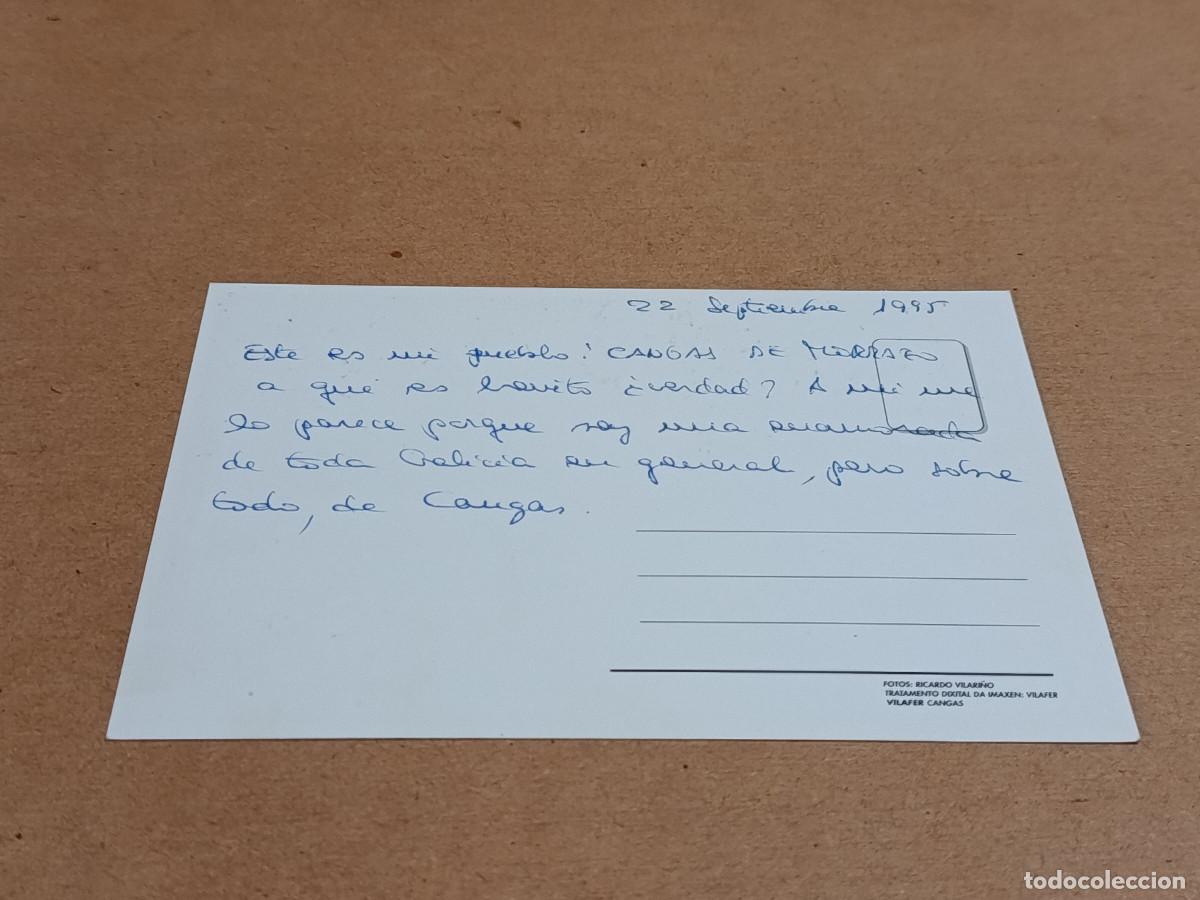 22 Septiembre 1995
Este es mi pueblo! CANGAS DE MORRAZO
a que es bonito ¿verdad? A mi me
lo parece porque soy una enamorada
de toda Galicia en general, pero sobre
todo, de Cangas.
FOTOS: RICARDO VILARIÑO
TRATAMENTO DIXITAL DA IMAXEN: VILAFER
VILAFER CANGAS
todocoleccion